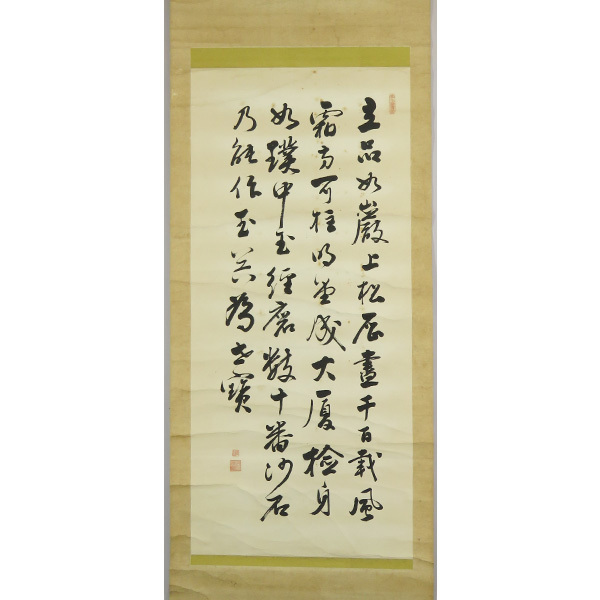 立品如巖上松歷盡千百載風
霜方可柱明堂成大廈檢身
如璞中玉經磨數十番沙石
乃能作玉器為世寶